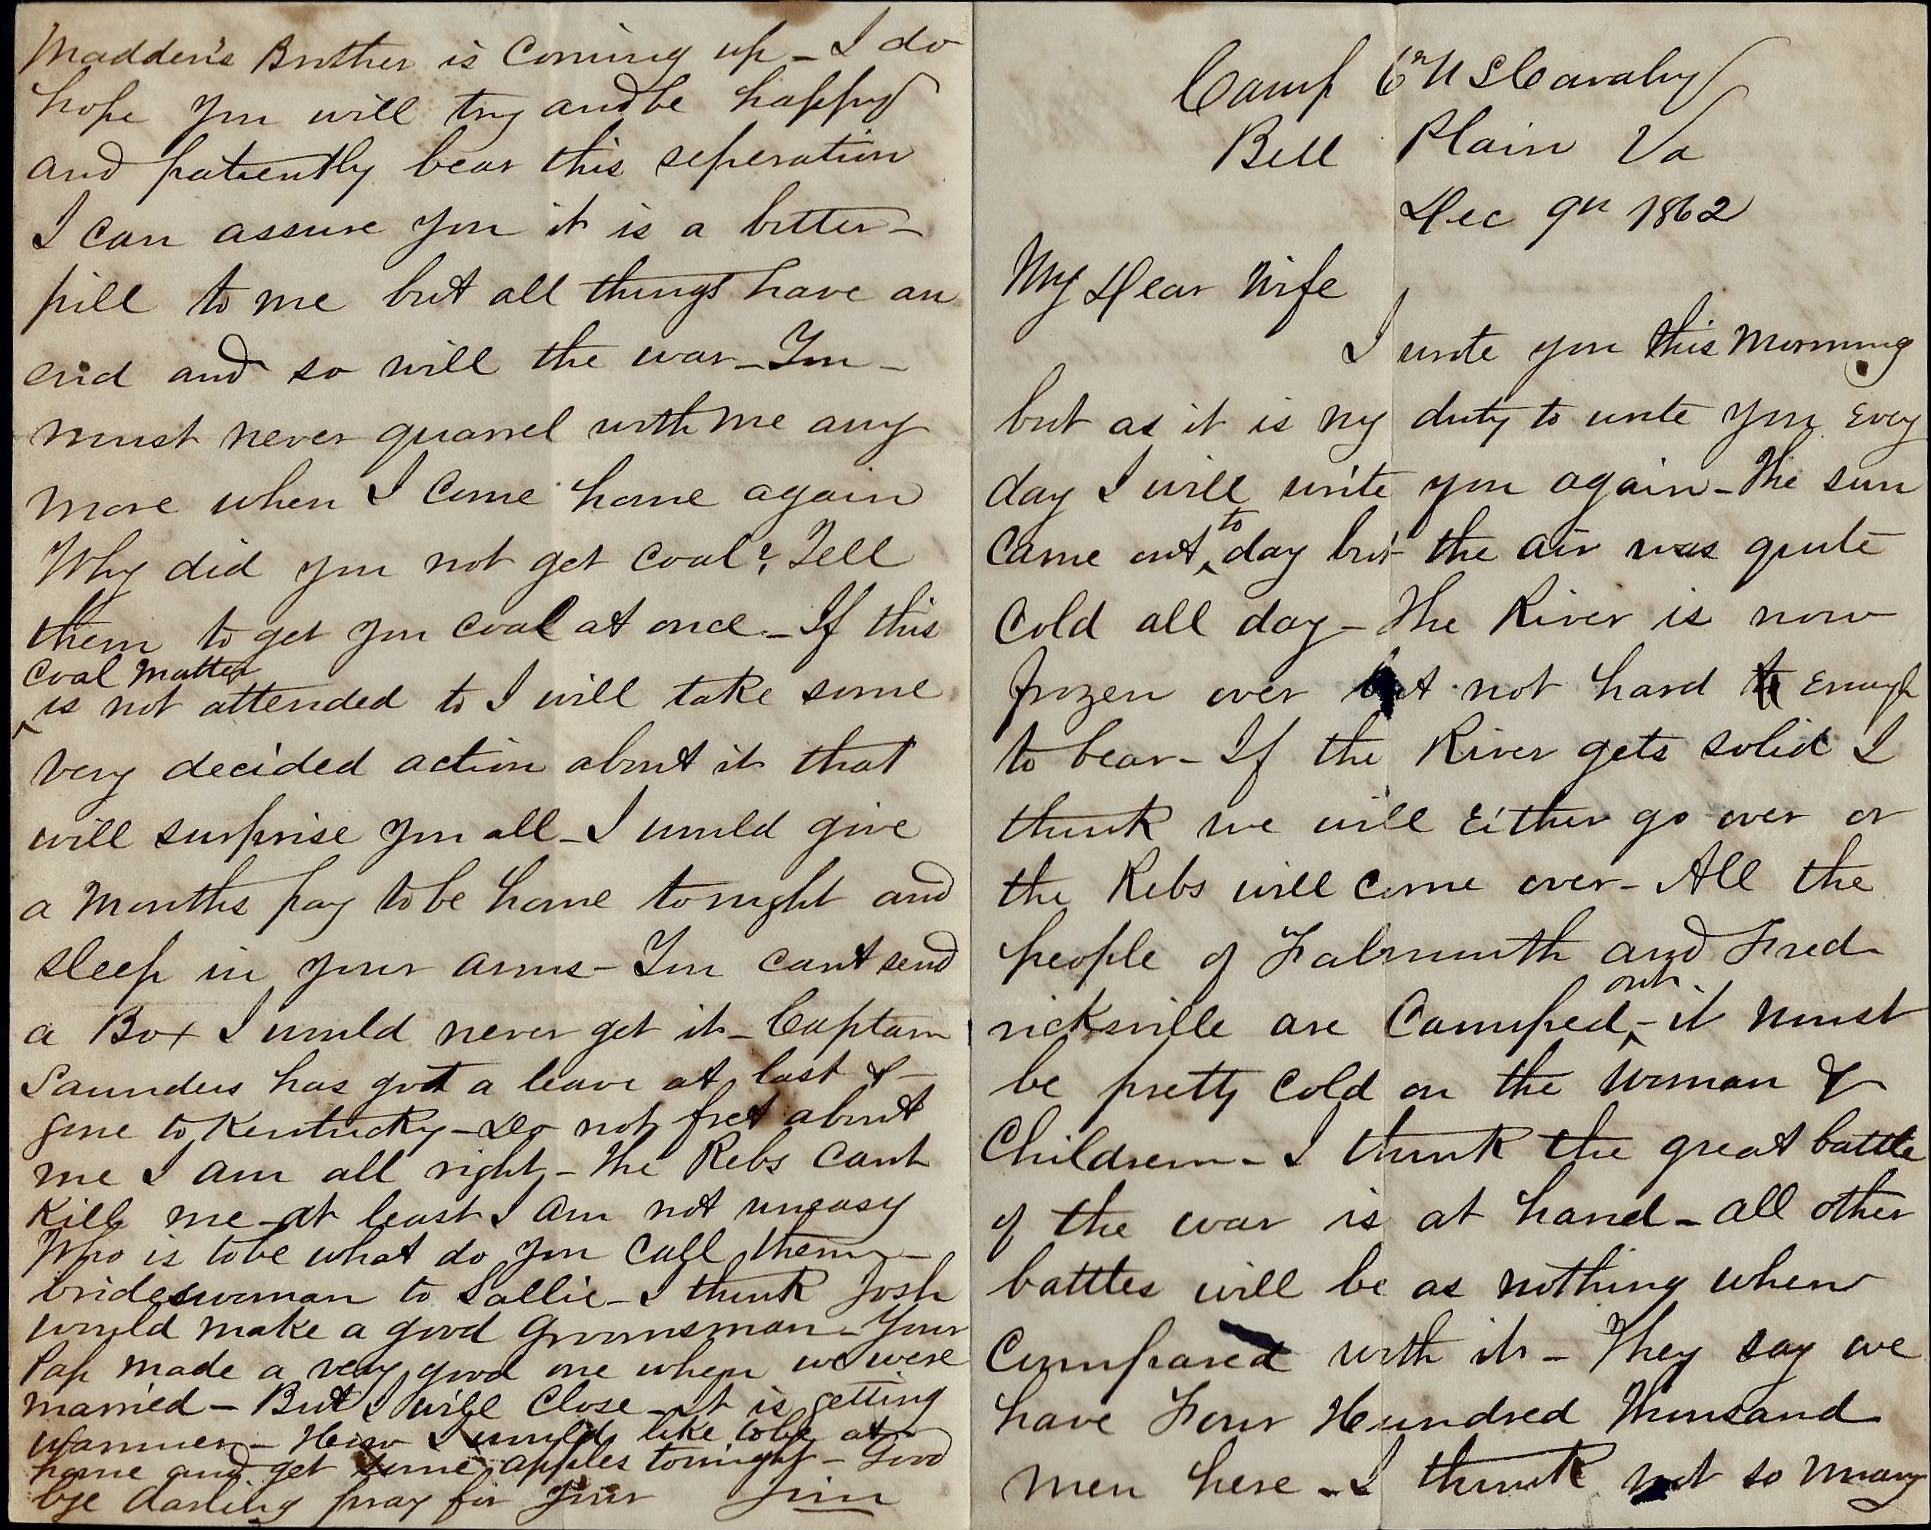 Camp 6th U S Cavalry
Bell Plain Va
Dec 9th 1862
My Dear Wife
I wrote you this Morning
but as it is my duty to write you Every
day I will write you again - The sun
came out to day but the air was quite
Cold all day - The River is now
frozen over but not hard Enough
to bear - If the River gets solid I
think we will Either go over or
the Rebs will come over - All the
people of Falmouth and Fred
ricksville are Camped out - it must
be pretty cold on the woman &
Children - I think the great battle
of the war is at hand - all other
battles will be as nothing when
Compared with it - They say we
have Four Hundred Thousand
men here - I think not so many
Madden's Brother is Coming up - I do
hope you will try and be happy
and patiently bear this seperation
I can assure you it is a bitter -
pill to me but all things have an
end and so will the war - You -
must never quarrel with me any
more when I come home again
Why did you not get coal? Tell
them to get you coal at once - If this
coal matter
is not attended to I will take some
very decided action about it that
will surprise you all - I would give
a Months pay to be home tonight and
sleep in your arms - You cant send
a Box I would never get it - Captain
Saunders has got a leave at last & -
gone to Kentucky - Do not fret about
me I am all right - The Rebs cant
Kill me - at least I am not uneasy
Who is to be what do you call them -
brideswoman to Sallie - I think Josh
would make a good Groomsman - Your
Pap made a very good one when we were
married - But I will Close - It is getting
warmer - How I would like to be at
home and get some apples tonight - Good
bye darling pray for your Jim